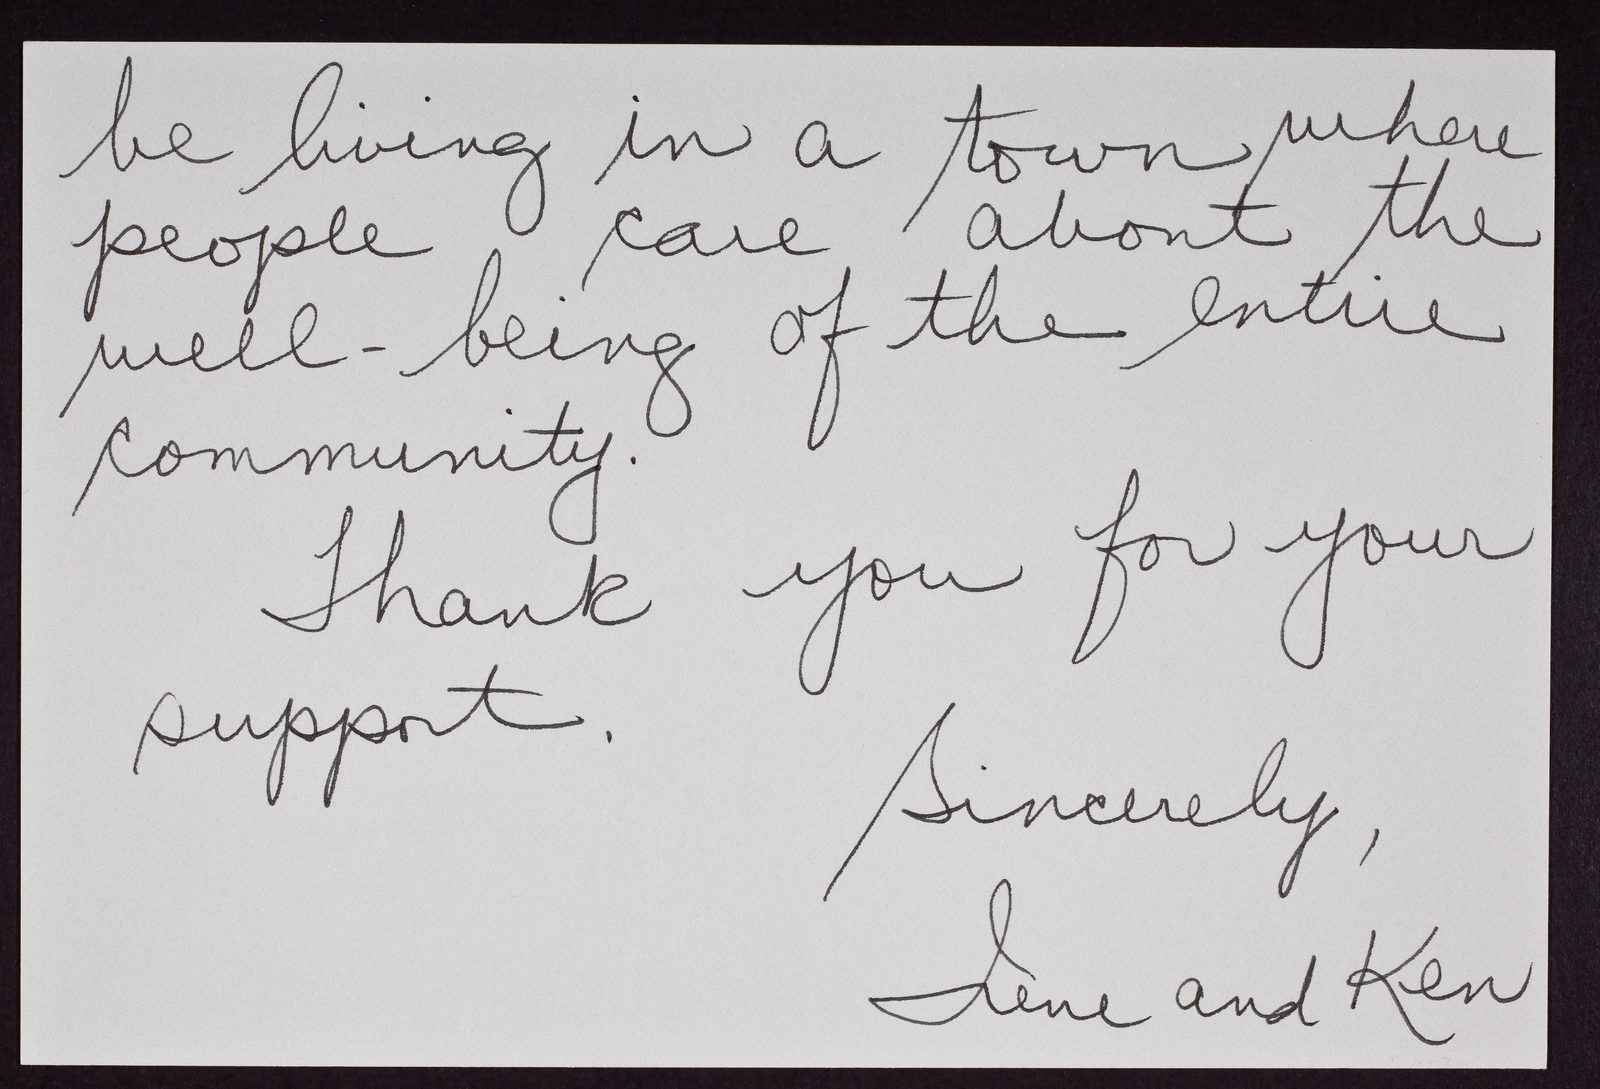 be living in a town where
people care about the
well-being of the entire
community.
Thank you for your
support.
Sincerely,
Irene and Ken